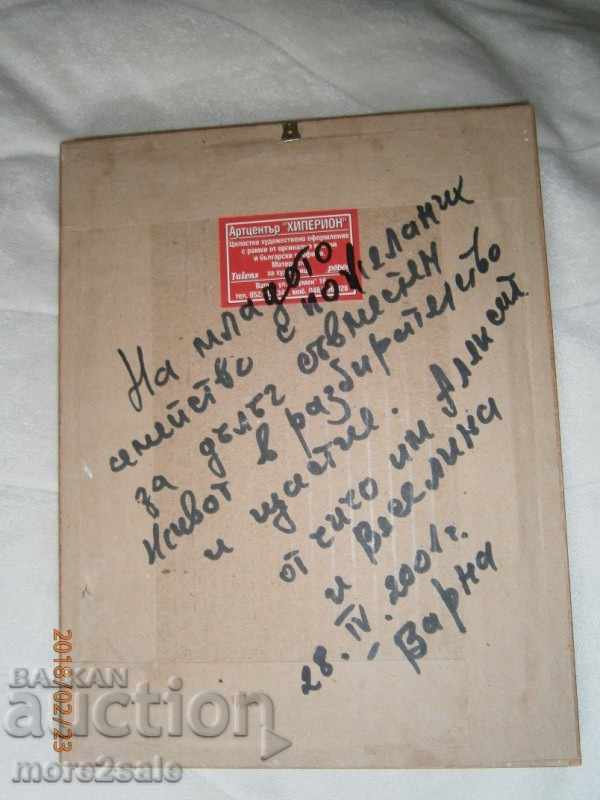 Артцентър "ХИПЕРИОН"
Цялостно художествено оформление
с рамки от
и български
Матер
Talens
за
тел. 052
На младото
семейство с пожелания
за дълъг съвместен
живот в разбирателство
и щастие.
от чичо им
и Веселина
28.IV.2001 г.
Варна
2018/02/23
БАЛКАН
auction
more2sale